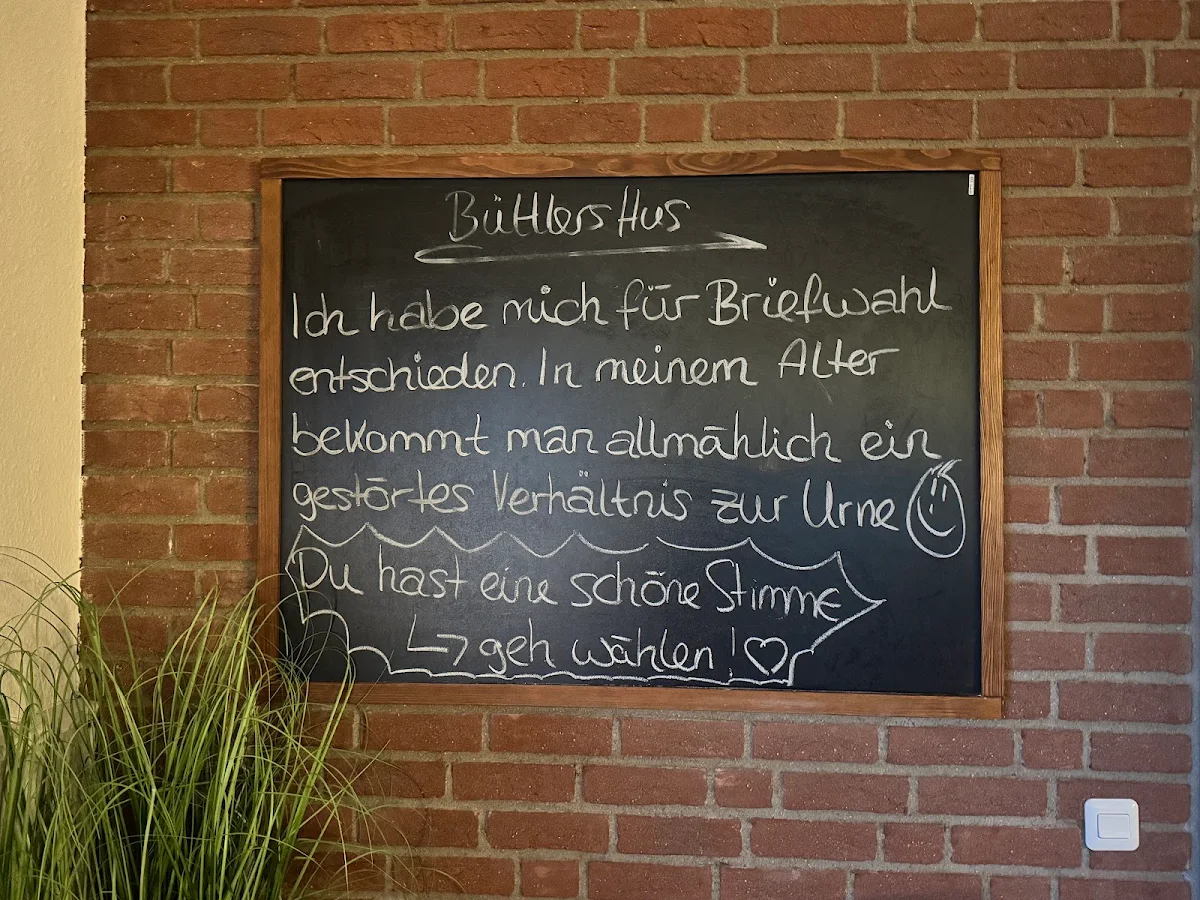 Büttlers Hus
Ich habe mich für Briefwahl
entschieden. In meinem Alter
bekommt man allmählich ein
gestörtes Verhältnis zur Urne
Du hast eine schöne Stimme
geh wählen!